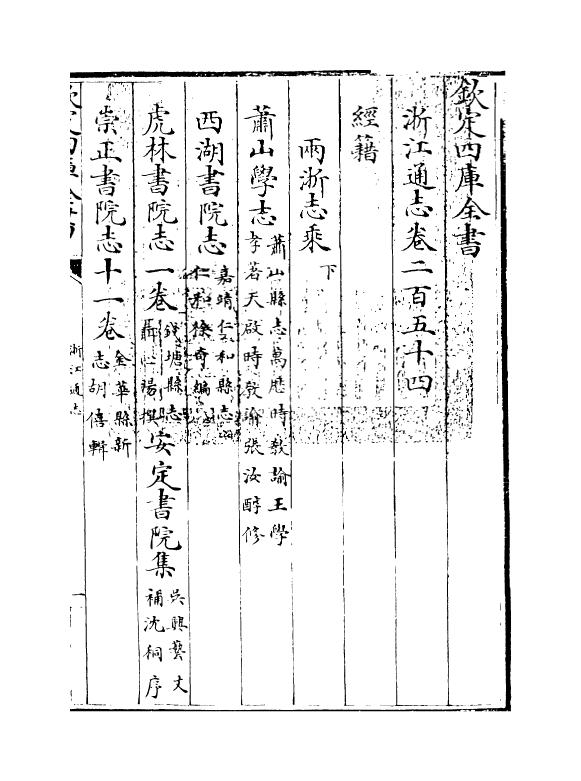 欽定四庫全書
浙江通志卷二百五十四
經籍
兩浙志乘下
蕭山學志蕭山縣志萬厯時教諭王學孝著天啟時教諭張汝醇修
西湖書院志嘉靖仁和縣志仁和徐奇編
虎林書院志一卷錢塘縣志聶心湯撰安定書院集吳興藝文補沈桐序
崇正書院志十一卷金華縣新志胡僖輯
欽定四庫全書
浙江通志
一